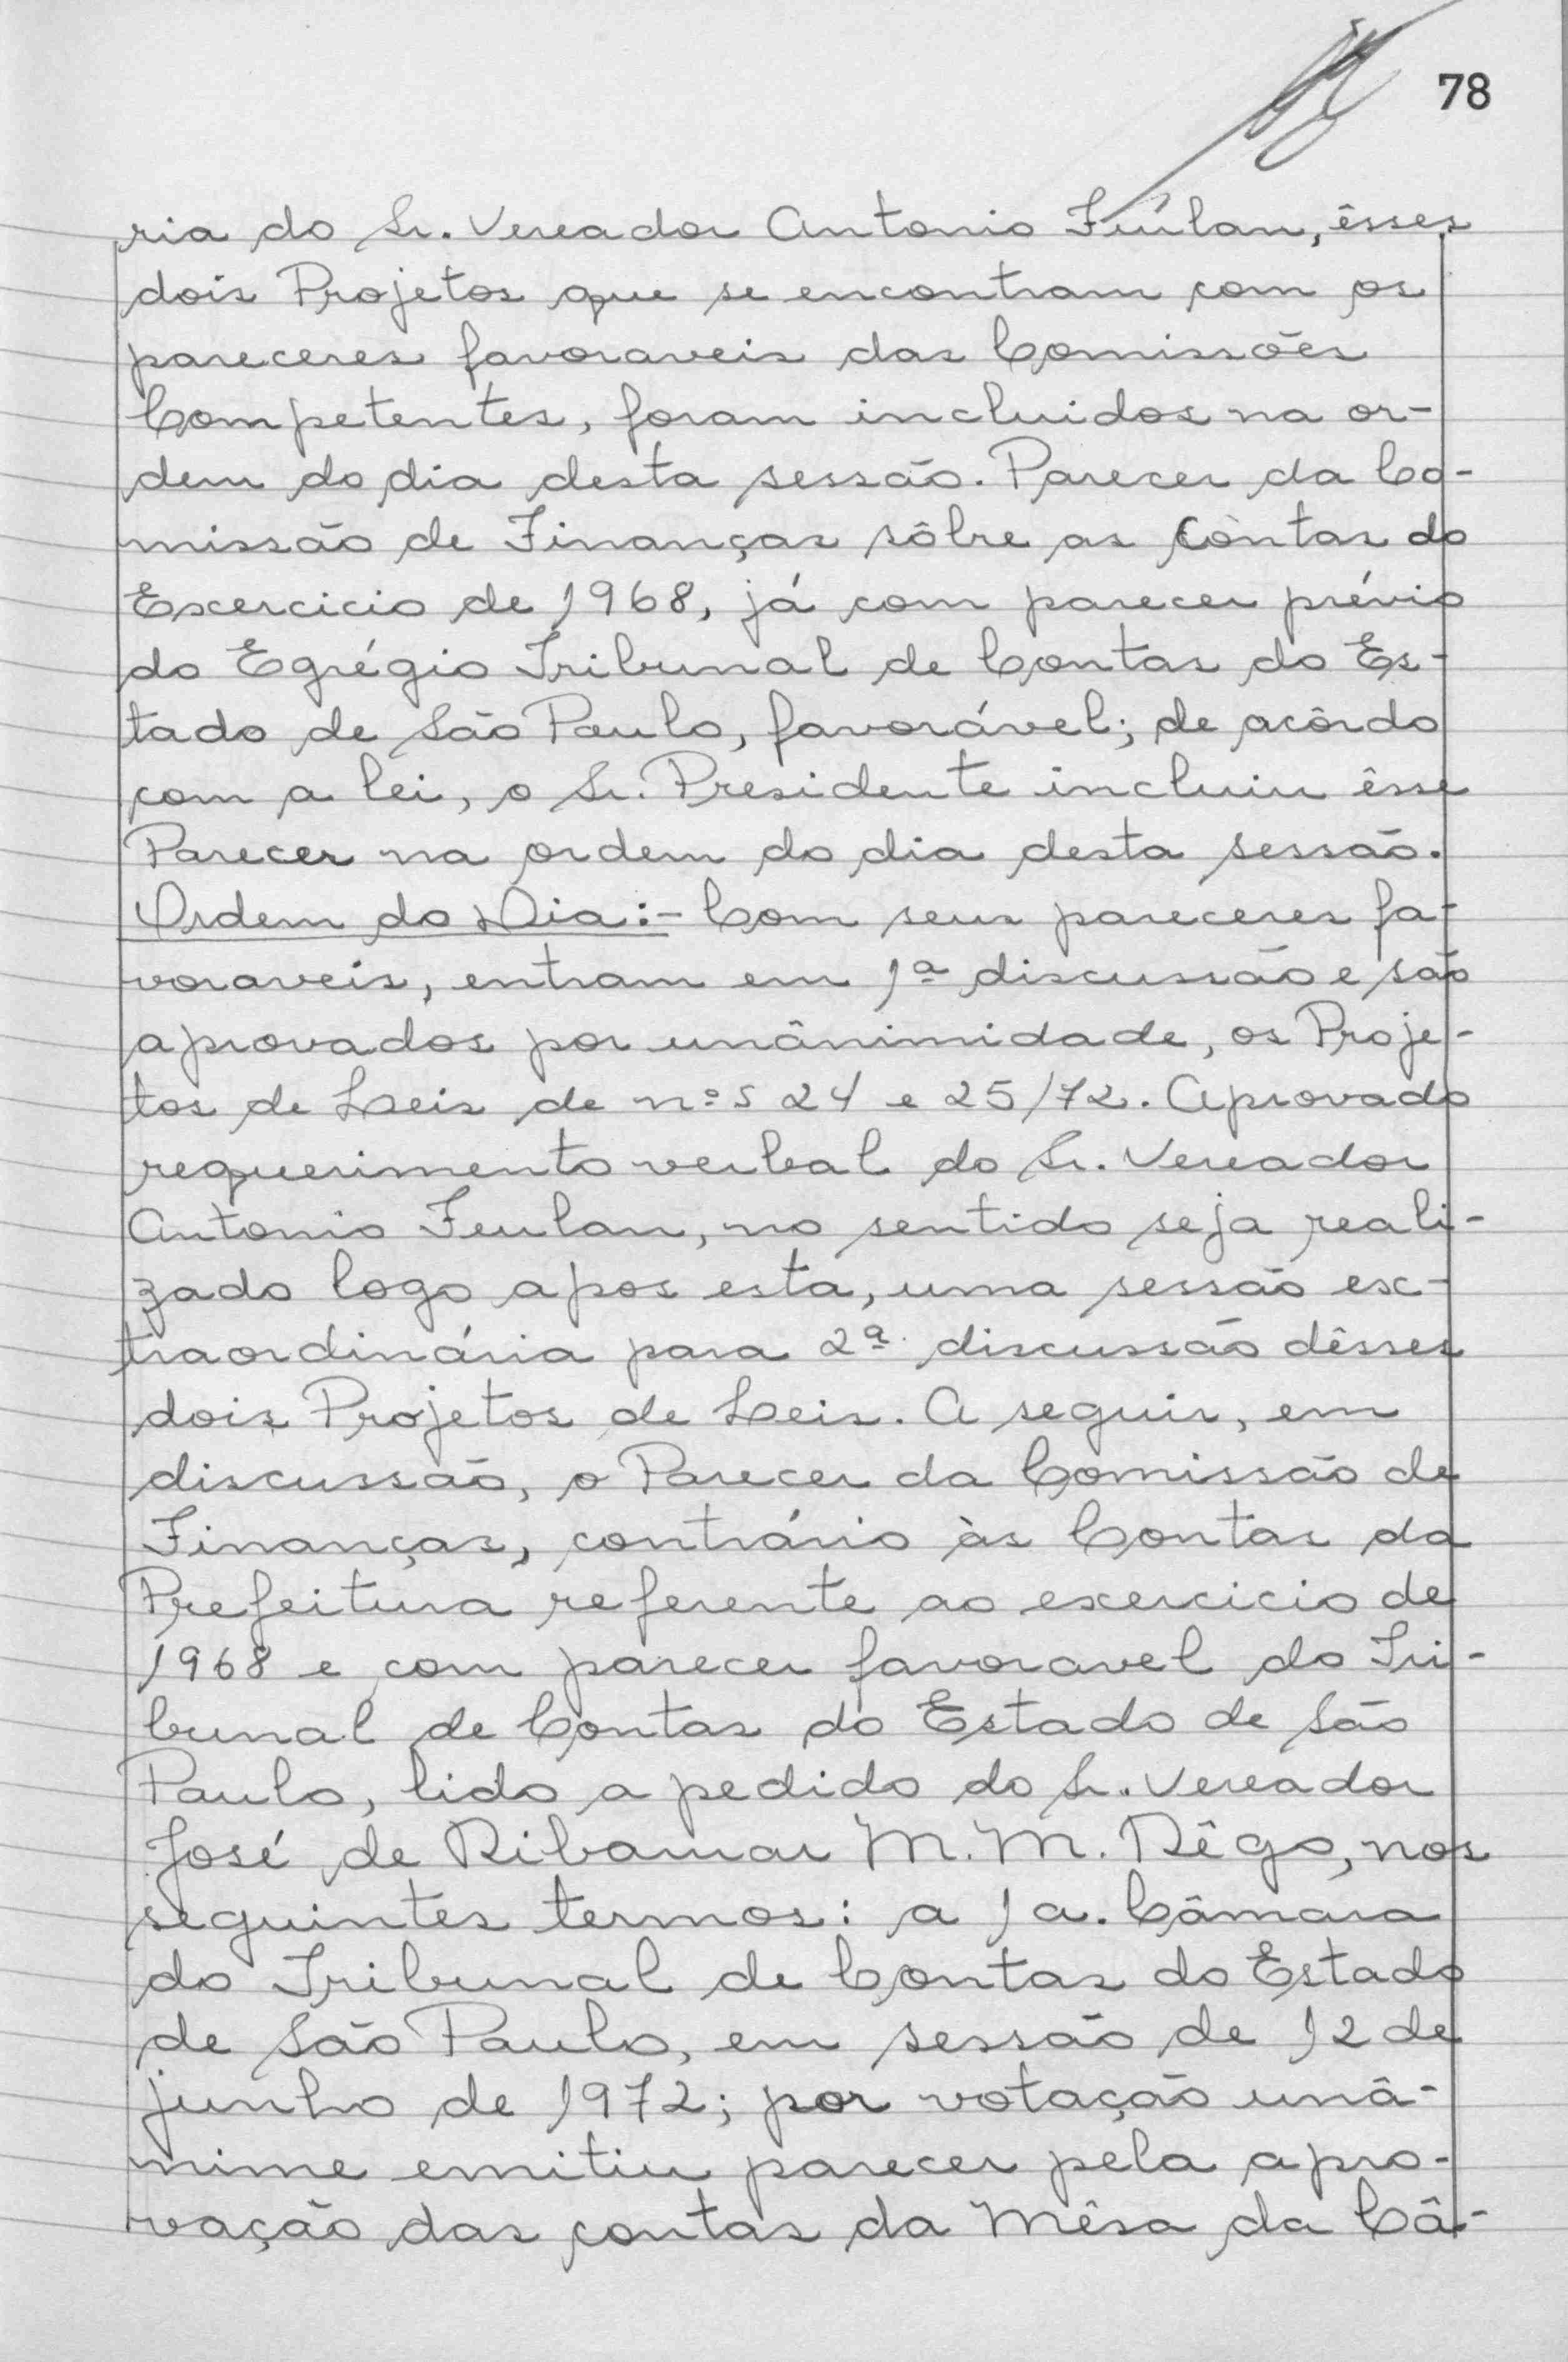 78
ria do Sr. Vereador Antonio Feulan, êsses
dois Projetos que se encontram com os
pareceres favoraveis das Comissões
Competentes, foram incluidos na or-
dem do dia desta sessão. Parecer da Co-
missão de Finanças sôbre as Contas do
Excercicio de 1968, já com parecer prévio
do Egrégio Tribunal de Contas do Es-
tado de São Paulo, favorável; de acôrdo
com a lei, o Sr. Presidente incluiu êsse
Parecer na ordem do dia desta sessão.
Ordem do Dia:- Com seus pareceres fa-
voraveis, entram em 1ª discussão e são
aprovados por unânimidade, os Proje-
tos de Leis de nºs 24 e 25/72. Aprovado
requerimento verbal do Sr. Vereador
Antonio Feulan, no sentido seja reali-
zado logo apos esta, uma sessão ex-
traordinária para 2ª discussão dêsses
dois Projetos de Leis. A seguir, em
discussão, o Parecer da Comissão de
Finanças, contrário às Contas da
Prefeitura referente ao excercicio de
1968 e com parecer favoravel do Tri-
bunal de Contas do Estado de São
Paulo, lido a pedido do Sr. Vereador
José de Ribamar M. M. Rêgo, nos
seguintes termos: a 1a. Câmara
do Tribunal de Contas do Estado
de São Paulo, em sessão de 12 de
junho de 1972; por votação unâ-
nime emitiu parecer pela apro-
vação das contas da Mêsa da Câ-